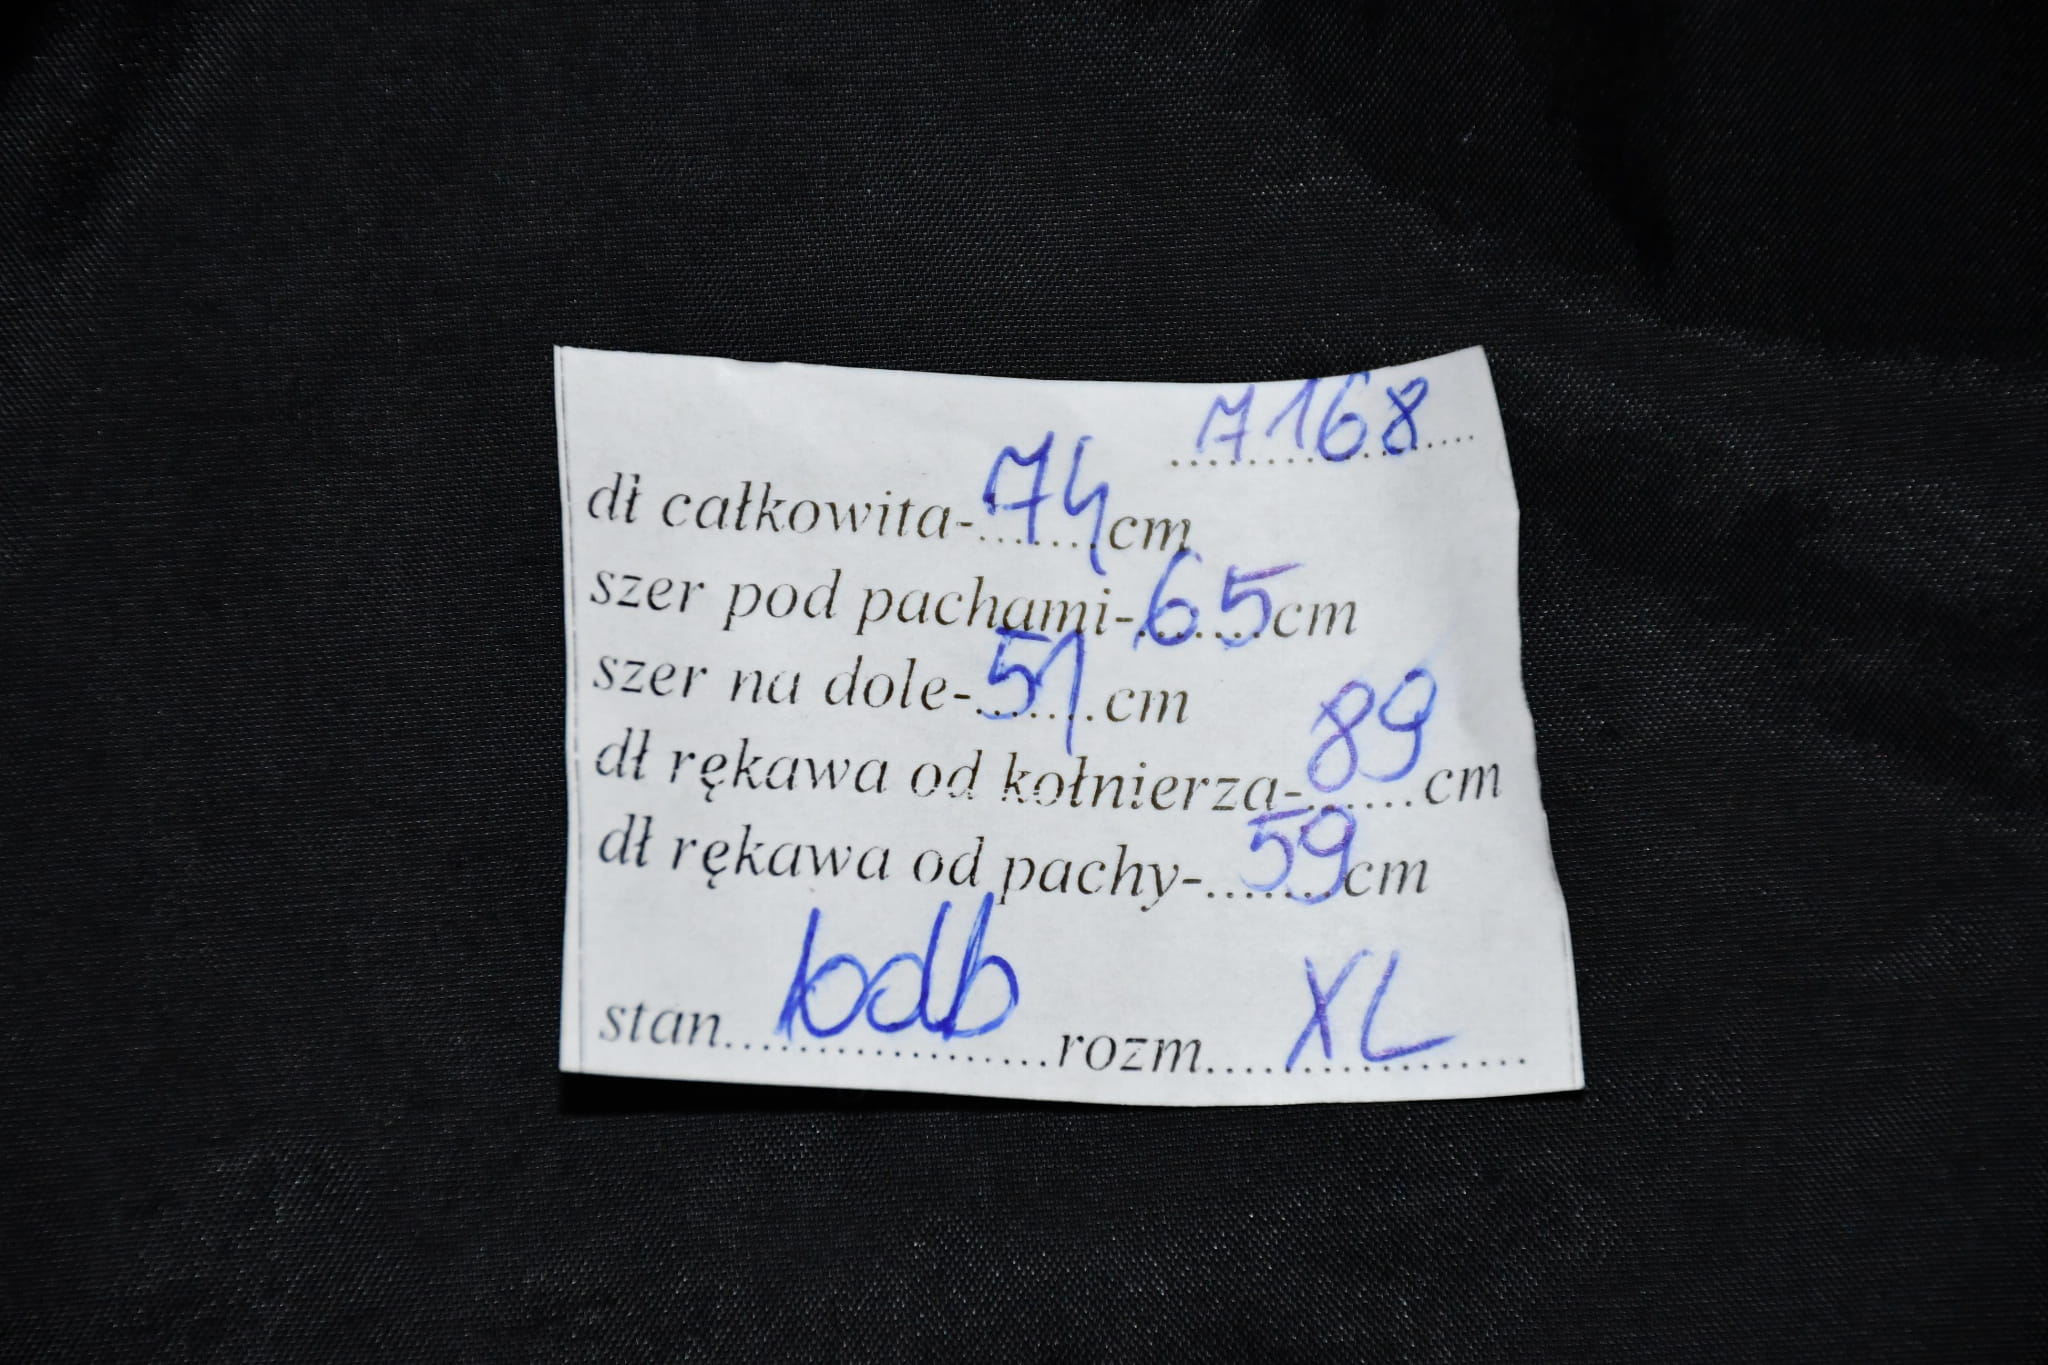 7168
dł całkowita-74cm
szer pod pachami-65cm
szer na dole-51cm
dł rękawa od kołnierza-89cm
dł rękawa od pachy-59cm
stan bdb rozm XL